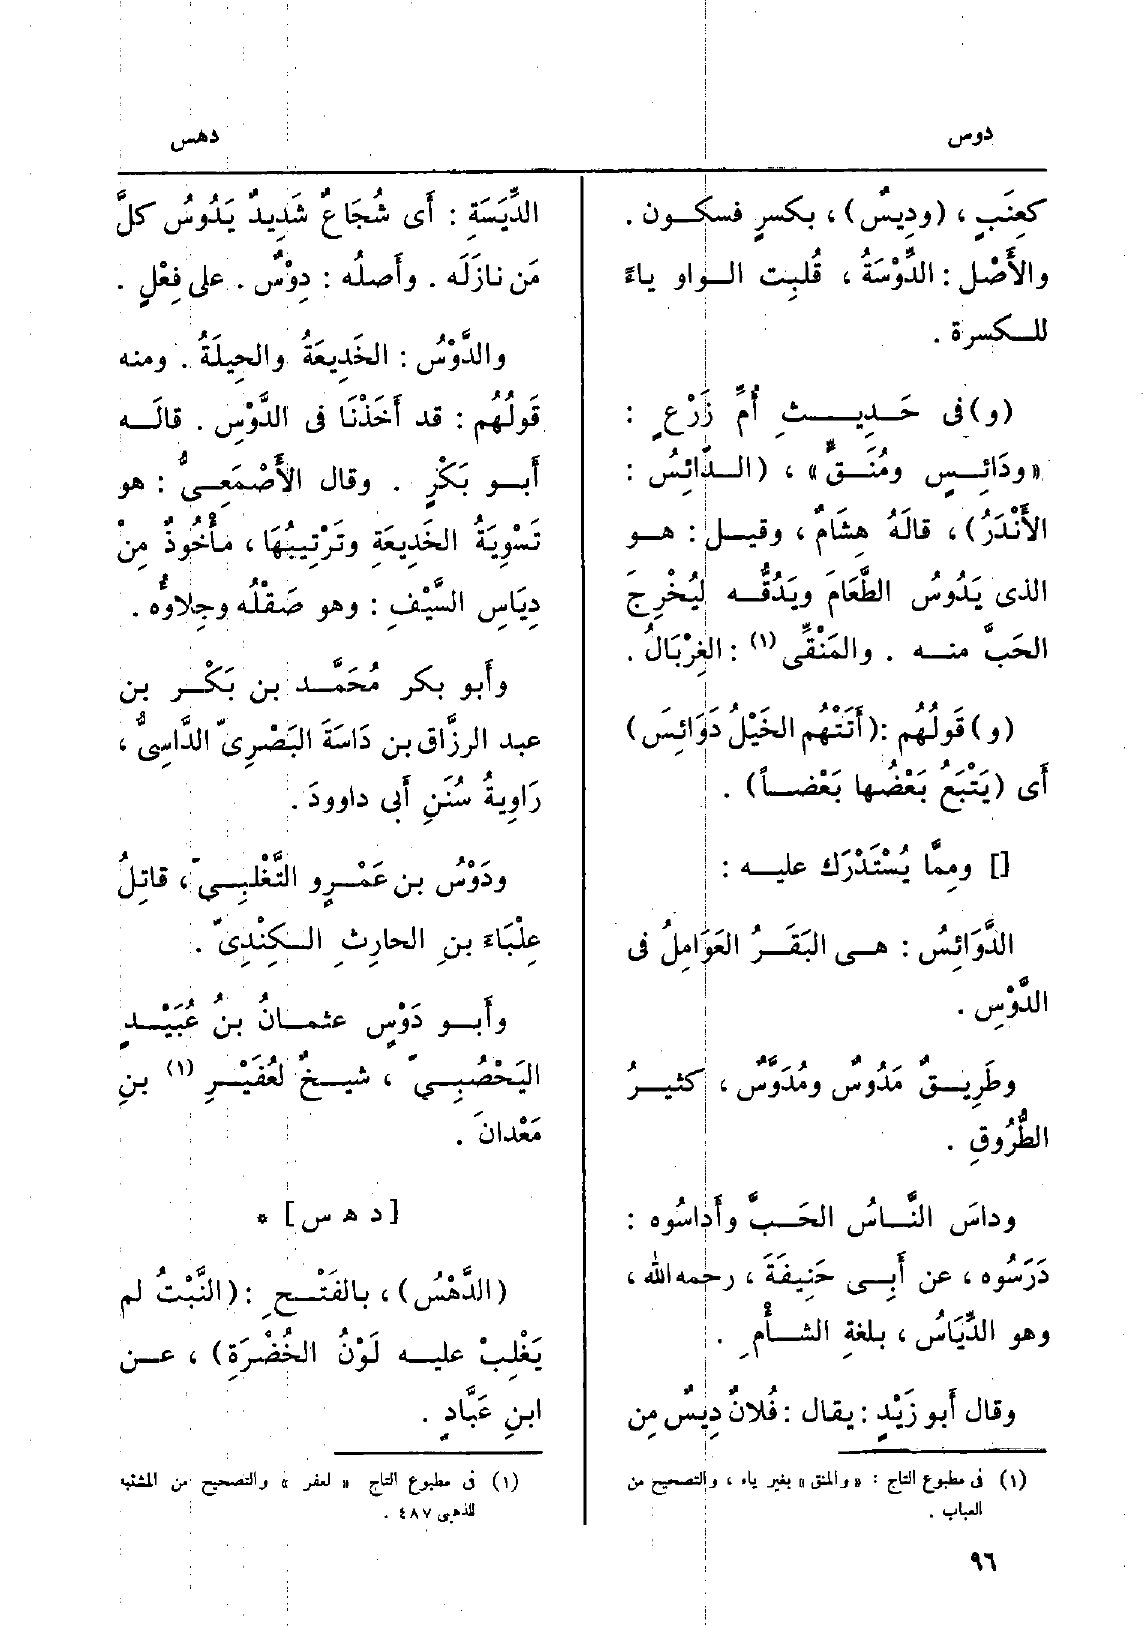 دوس
دهس
كعِنَبٍ ، (ودِيسٌ) ، بكسرٍ فسكون .
والأَصْل : الدِّوْسَةُ ، قُلِبت الواو ياءً
للكسرة .
(و) فى حَدِيثِ أُمِّ زَرْعٍ :
«ودَائِسٍ ومُنَقٍّ» ، (الدّائِسُ :
الأَنْدَرُ) ، قالَهُ هِشَامٌ ، وقيل : هو
الذى يَدُوسُ الطَّعَامَ ويَدُقُّه لِيُخْرِجَ
الحَبَّ منه . والمَنْقِّى (١) : الغِرْبَالُ .
(و) قَولُهُم : (أَتَتْهُم الخَيْلُ دَوَائِسَ)
أَى (يَتْبَعُ بَعْضُها بَعْضاً) .
[] ومِمَّا يُسْتَدْرَك عليه :
الدَّوَائِسُ : هى البَقَرُ العَوَامِلُ فى
الدَّوْسِ .
وطَرِيقٌ مَدُوسٌ ومُدَوَّسٌ ، كثيرُ
الطُّرُوقِ .
وداسَ النَّاسُ الحَبَّ وأَداسُوه :
دَرَسُوه ، عن أَبِى حَنِيفَةَ ، رحمه الله ،
وهو الدِّيَاسُ ، بلغةِ الشأْمِ .
وقال أَبو زَيْدٍ : يقال : فُلانٌ دِيسٌ مِن
(١) فى مطبوع التاج : «والمنق» بغير ياء ، والتصحيح من
العباب .
الدِّيَسَةِ : أَى شُجَاعٌ شَدِيدٌ يَدُوسُ كلَّ
مَن نازَلَه . وأَصلُه : دِوْسٌ . على فِعْلٍ .
والدَّوْسُ : الخَدِيعَةُ والحِيلَةُ . ومنه
قَولُهُم : قد أَخَذْنَا فى الدَّوْسِ . قالَه
أَبو بَكْرٍ . وقال الأَصْمَعِىُّ : هو
تَسْوِيَةُ الخَدِيعَةِ وتَرْتِيبُهَا ، مأْخُوذٌ مِنْ
دِيَاسِ السَّيْفِ : وهو صَقْلُه وجِلاوُه .
وأَبو بكر مُحَمَّد بن بَكْر بن
عبد الرزَّاق بن دَاسَةَ البَصْرِىّ الدَّاسِىُّ ،
رَاوِيَةُ سُنَنِ أَبى داوودَ .
ودَوْسُ بن عَمْرٍو التَّغْلِبِىّ ، قاتِلُ
عِلْبَاءَ بنِ الحارِثِ الكِنْدِىّ .
وأَبو دَوْسٍ عثمانُ بنُ عُبَيْدٍ
اليَحْصُبِىّ ، شيخٌ لعُفَيْرِ (١) بنِ
مَعْدانَ .
[ د ه س ] *
(الدَّهْسُ) ، بالفَتْحِ : (النَّبْتُ لم
يَغْلِبْ عليه لَوْنُ الخُضْرَةِ) ، عن
ابنِ عَبَّادٍ .
(١) فى مطبوع التاج « لعفر » والتصحيح من المشتبه
للذهبى ٤٨٧ .
٩٦